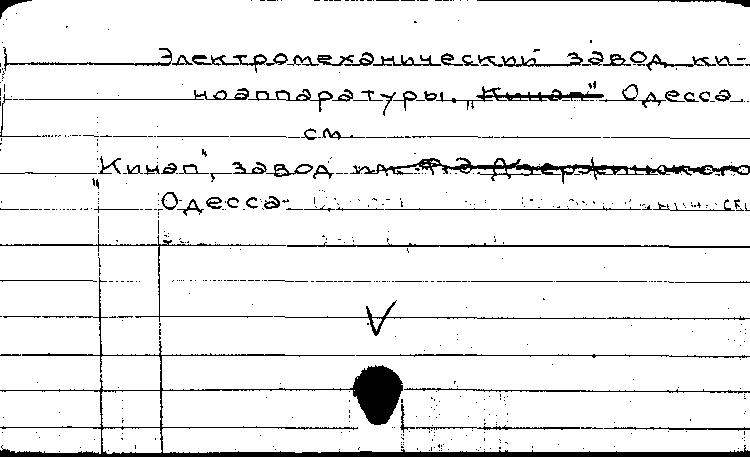 Электромеханический завод ки-
ноаппаратуры. „Кинап" Одесса
см.
„Кинап", завод им. Ф.Э. Дзержинского
Одесса